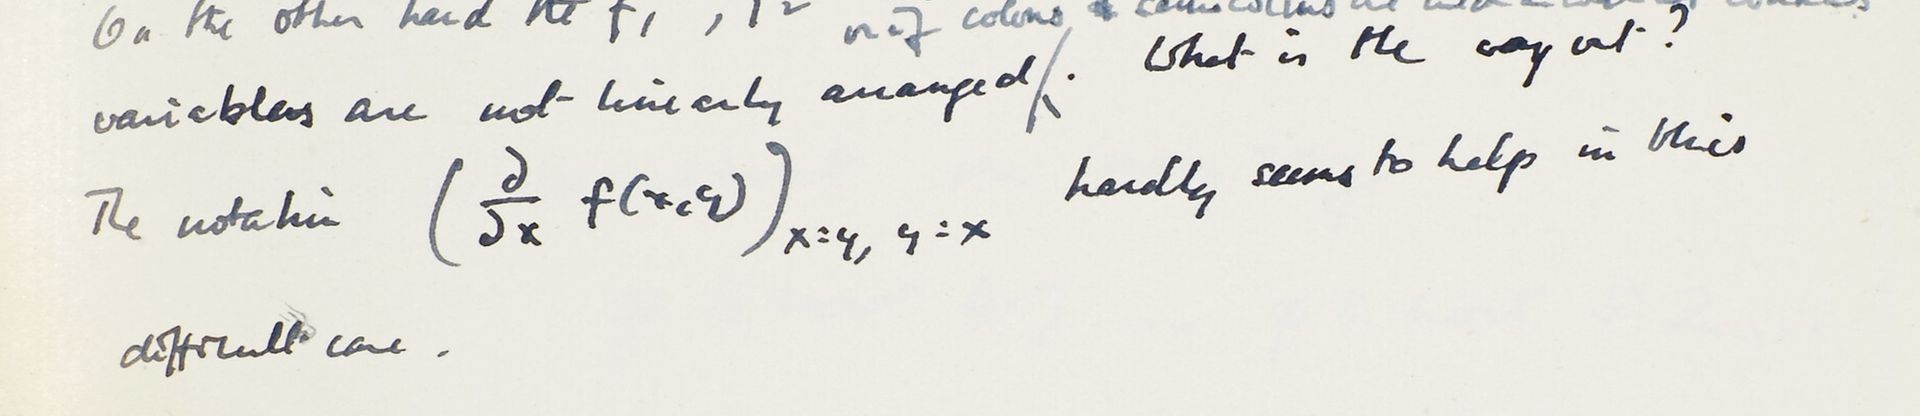 On the other hand the f₁ , f²
or if colons & semicolons are used
variables are not linearly arranged/. What is the way out?
The notation (∂/∂x f(x,y))x=y, y=x hardly seems to help in this
difficult case.